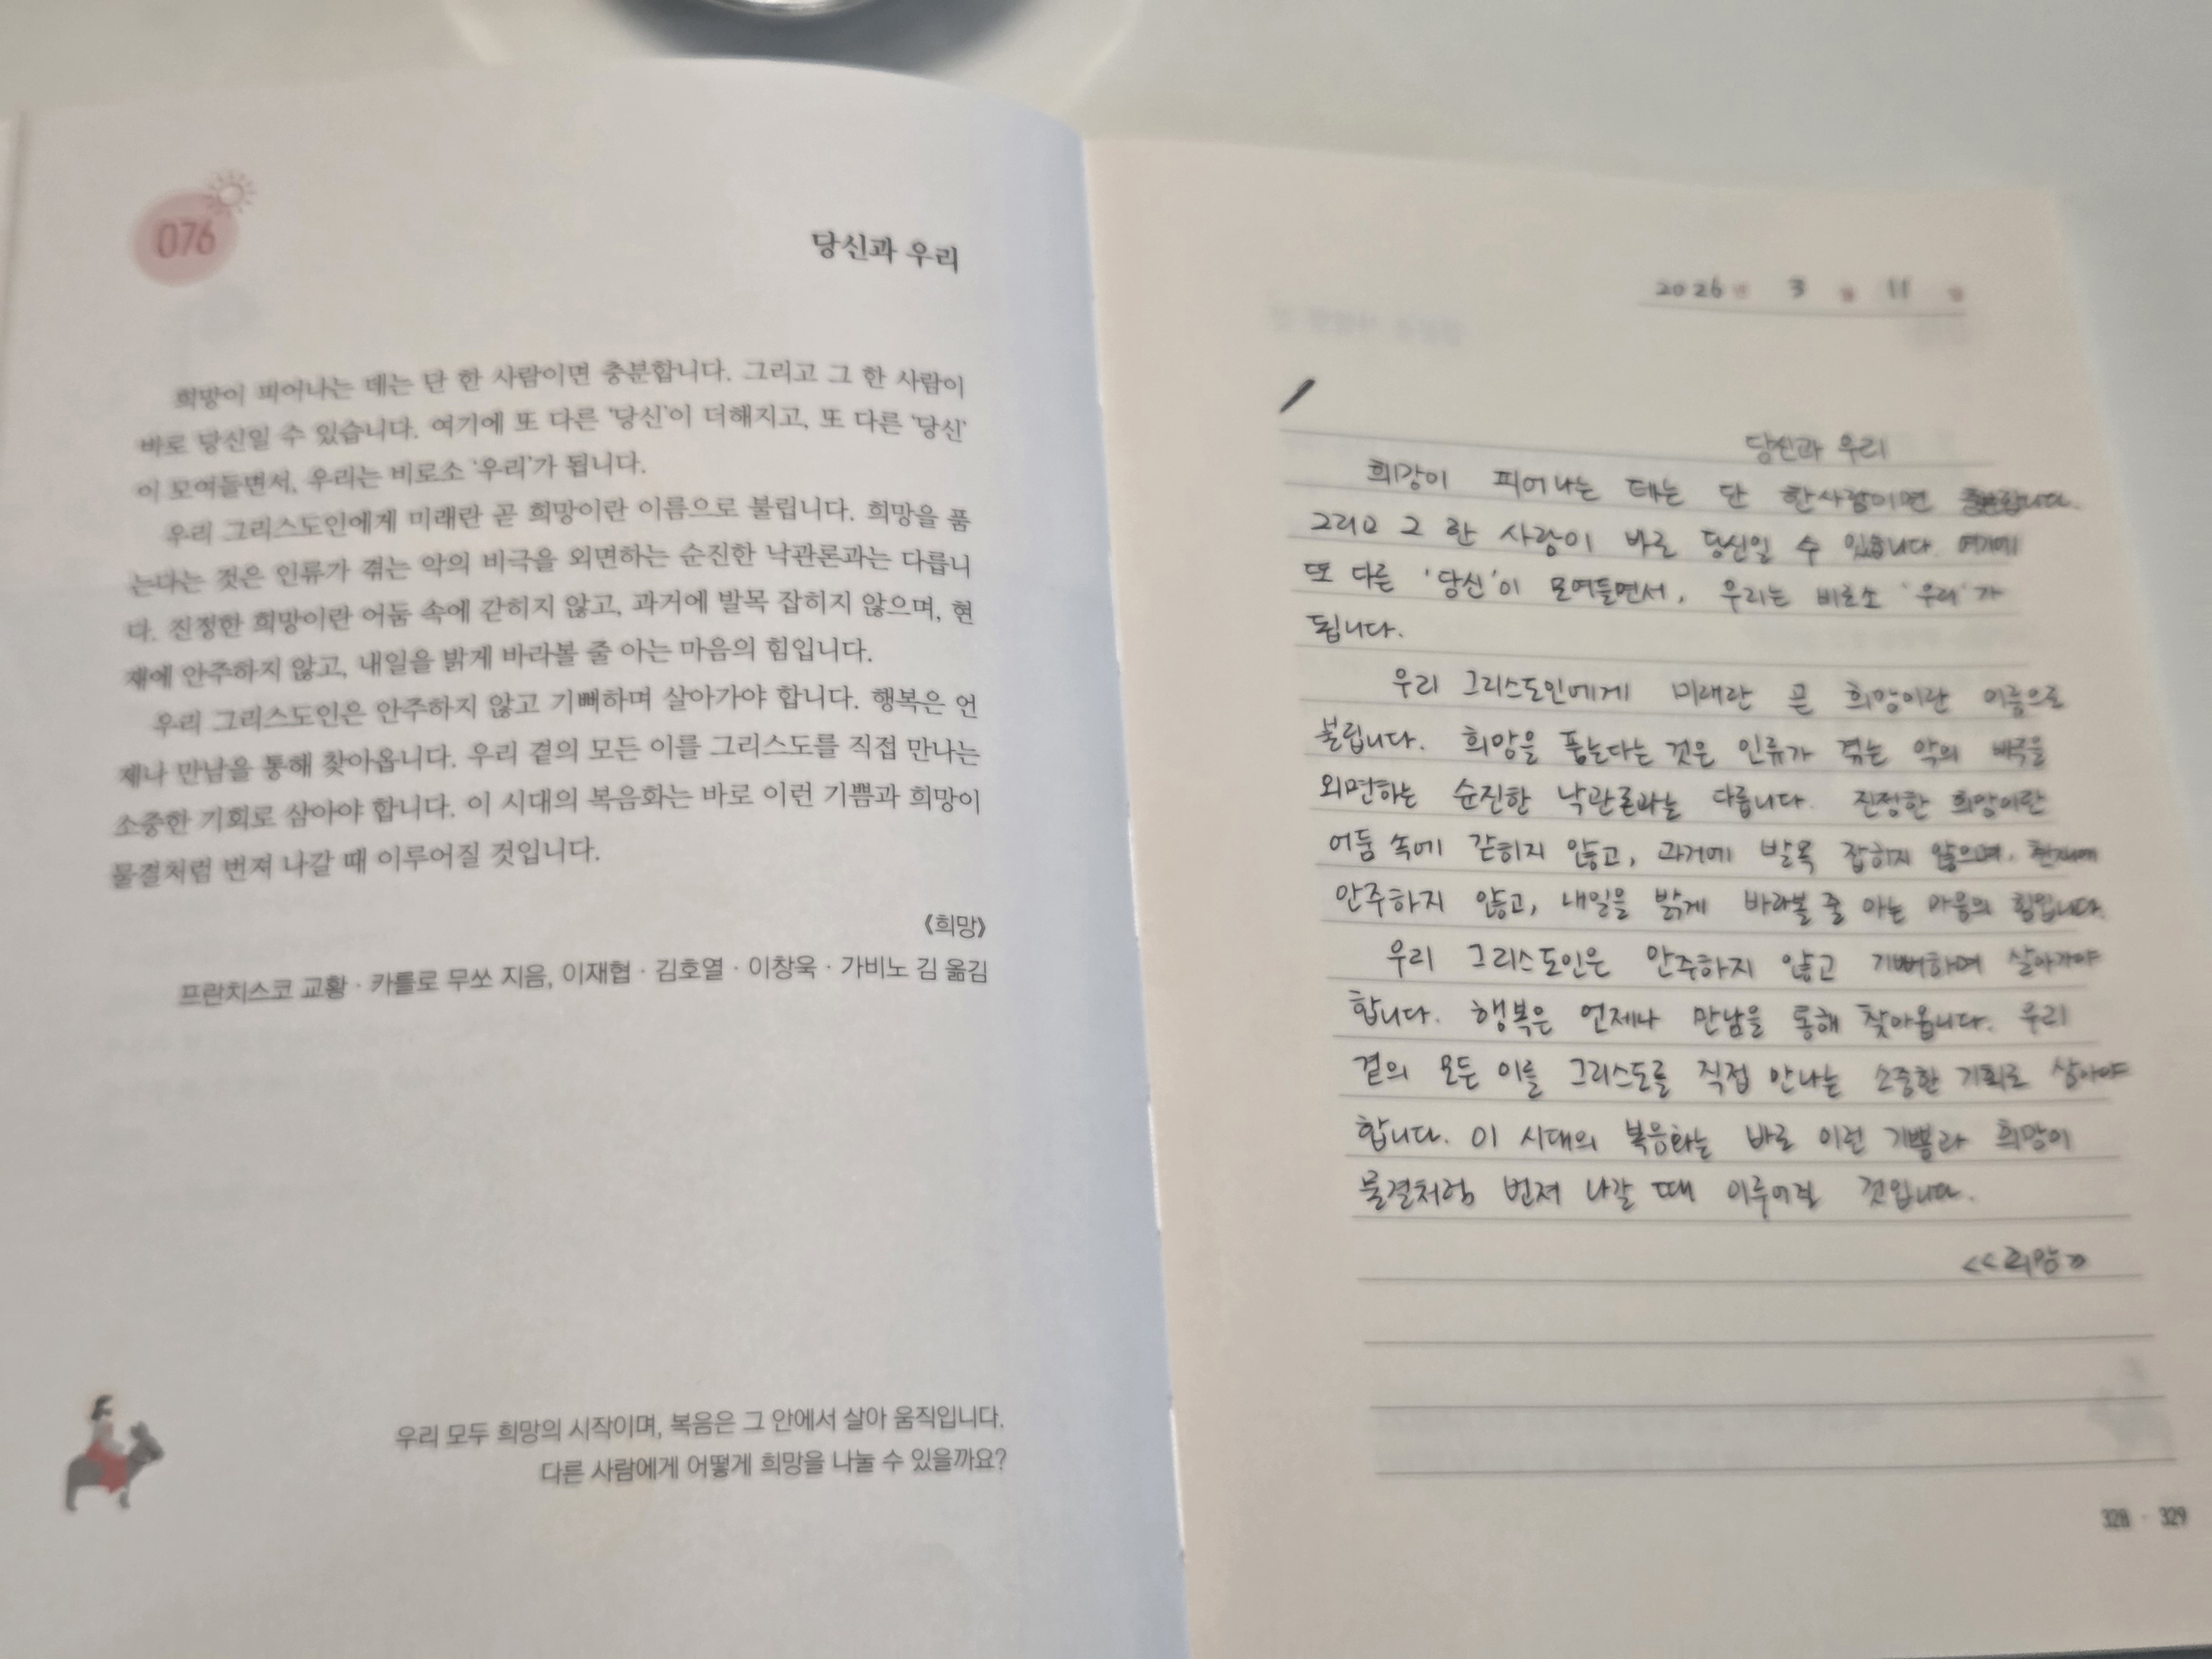 076
당신과 우리
희망이 피어나는 데는 단 한 사람이면 충분합니다. 그리고 그 한 사람이
바로 당신일 수 있습니다. 여기에 또 다른 '당신'이 더해지고, 또 다른 '당신'
이 모여들면서, 우리는 비로소 '우리'가 됩니다.
우리 그리스도인에게 미래란 곧 희망이란 이름으로 불립니다. 희망을 품
는다는 것은 인류가 겪는 악의 비극을 외면하는 순진한 낙관론과는 다릅니
다. 진정한 희망이란 어둠 속에 갇히지 않고, 과거에 발목 잡히지 않으며, 현
재에 안주하지 않고, 내일을 밝게 바라볼 줄 아는 마음의 힘입니다.
우리 그리스도인은 안주하지 않고 기뻐하며 살아가야 합니다. 행복은 언
제나 만남을 통해 찾아옵니다. 우리 곁의 모든 이를 그리스도를 직접 만나는
소중한 기회로 삼아야 합니다. 이 시대의 복음화는 바로 이런 기쁨과 희망이
물결처럼 번져 나갈 때 이루어질 것입니다.
《희망》
프란치스코 교황 · 카를로 무쏘 지음, 이재협 · 김호열 · 이창욱 · 가비노 김 옮김
우리 모두 희망의 시작이며, 복음은 그 안에서 살아 움직입니다.
다른 사람에게 어떻게 희망을 나눌 수 있을까요?
2026년 3 월 11 일
당신과 우리
희망이 피어나는 데는 단 한사람이면 충분합니다.
그리고 그 한 사람이 바로 당신일 수 있습니다. 여기에
또 다른 '당신'이 모여들면서, 우리는 비로소 '우리'가
됩니다.
우리 그리스도인에게 미래란 곧 희망이란 이름으로
불립니다. 희망을 품는다는 것은 인류가 겪는 악의 비극을
외면하는 순진한 낙관론과는 다릅니다. 진정한 희망이란
어둠 속에 갇히지 않고, 과거에 발목 잡히지 않으며, 현재에
안주하지 않고, 내일을 밝게 바라볼 줄 아는 마음의 힘입니다.
우리 그리스도인은 안주하지 않고 기뻐하며 살아가야
합니다. 행복은 언제나 만남을 통해 찾아옵니다. 우리
곁의 모든 이를 그리스도를 직접 만나는 소중한 기회로 삼아야
합니다. 이 시대의 복음화는 바로 이런 기쁨과 희망이
물결처럼 번져 나갈 때 이루어질 것입니다.
<<희망>>
328 · 329